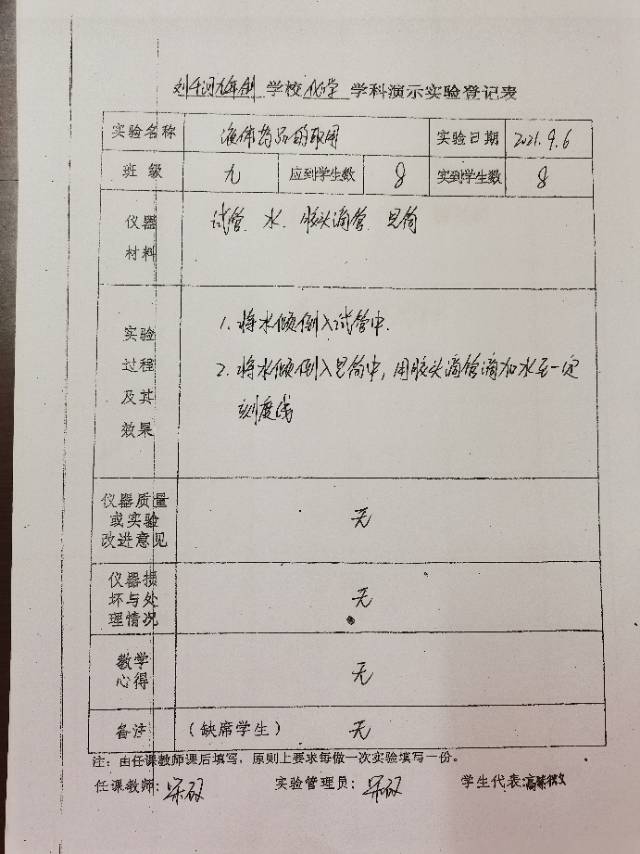 学校 化学 学科演示实验登记表
实验名称 液体药品的取用 实验日期 2021.9.6
班级 九 应到学生数 8 实到学生数 8
仪器 试管 水 胶头滴管 量筒
材料
实验 1.将水倾倒入试管中.
过程 2.将水倾倒入量筒中,用胶头滴管滴加水至一定
及其 刻度线
效果
仪器质量
或实验 无
改进意见
仪器损
坏与处 无
理情况
教学
心得 无
备注 (缺席学生) 无
注:由任课教师课后填写,原则上要求每做一次实验填写一份。
任课教师: 实验管理员: 学生代表: